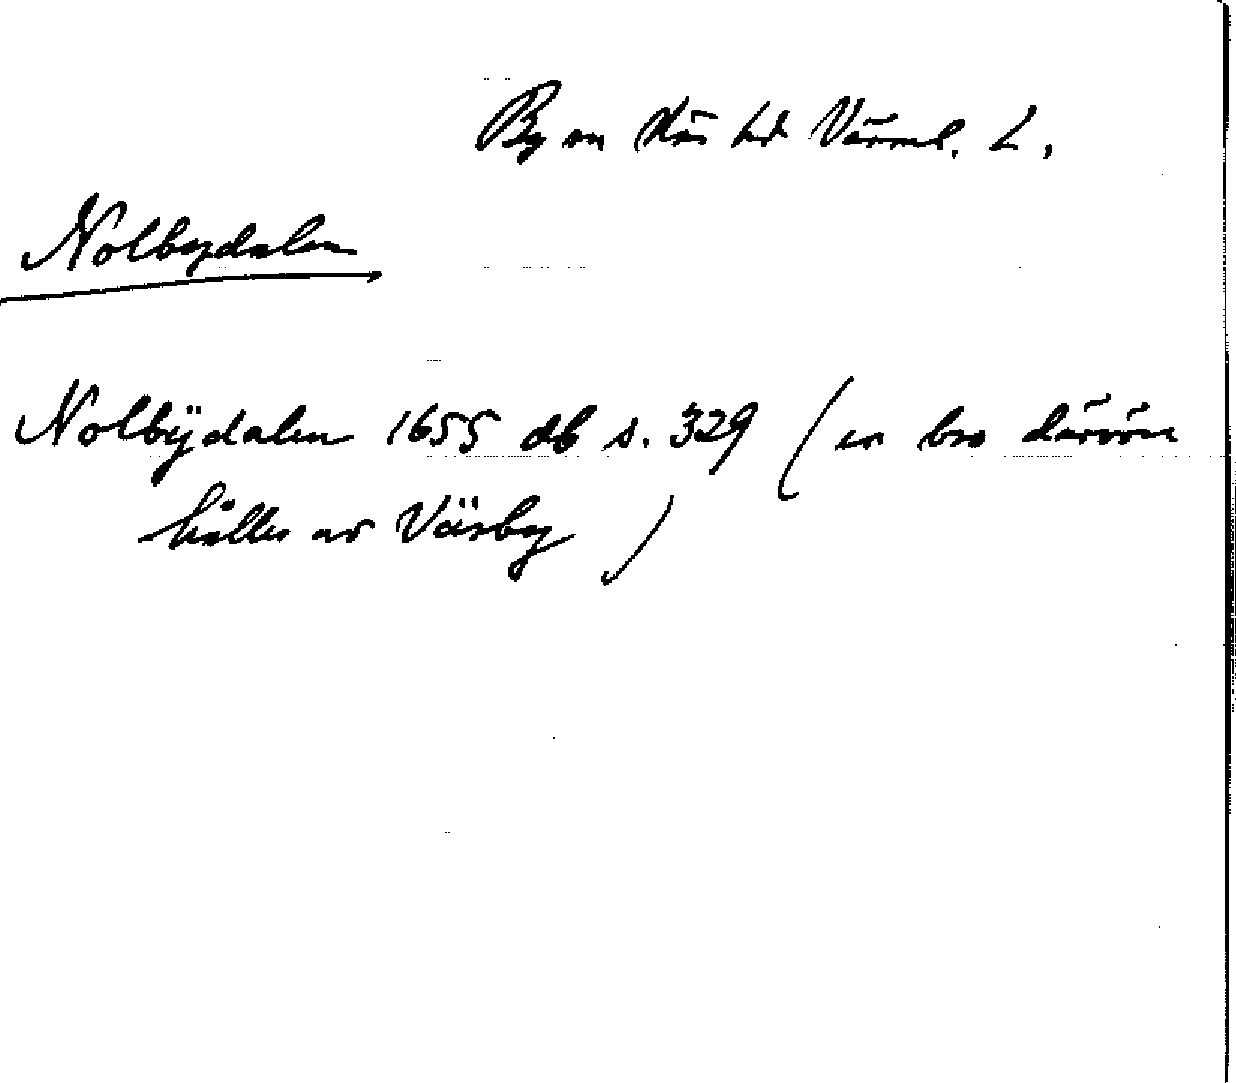 By sn Näs hd Värml. L.
Nolbydalen
Nolbÿdalen 1655 db s. 329 (en bro däröver
hålles av Värby)